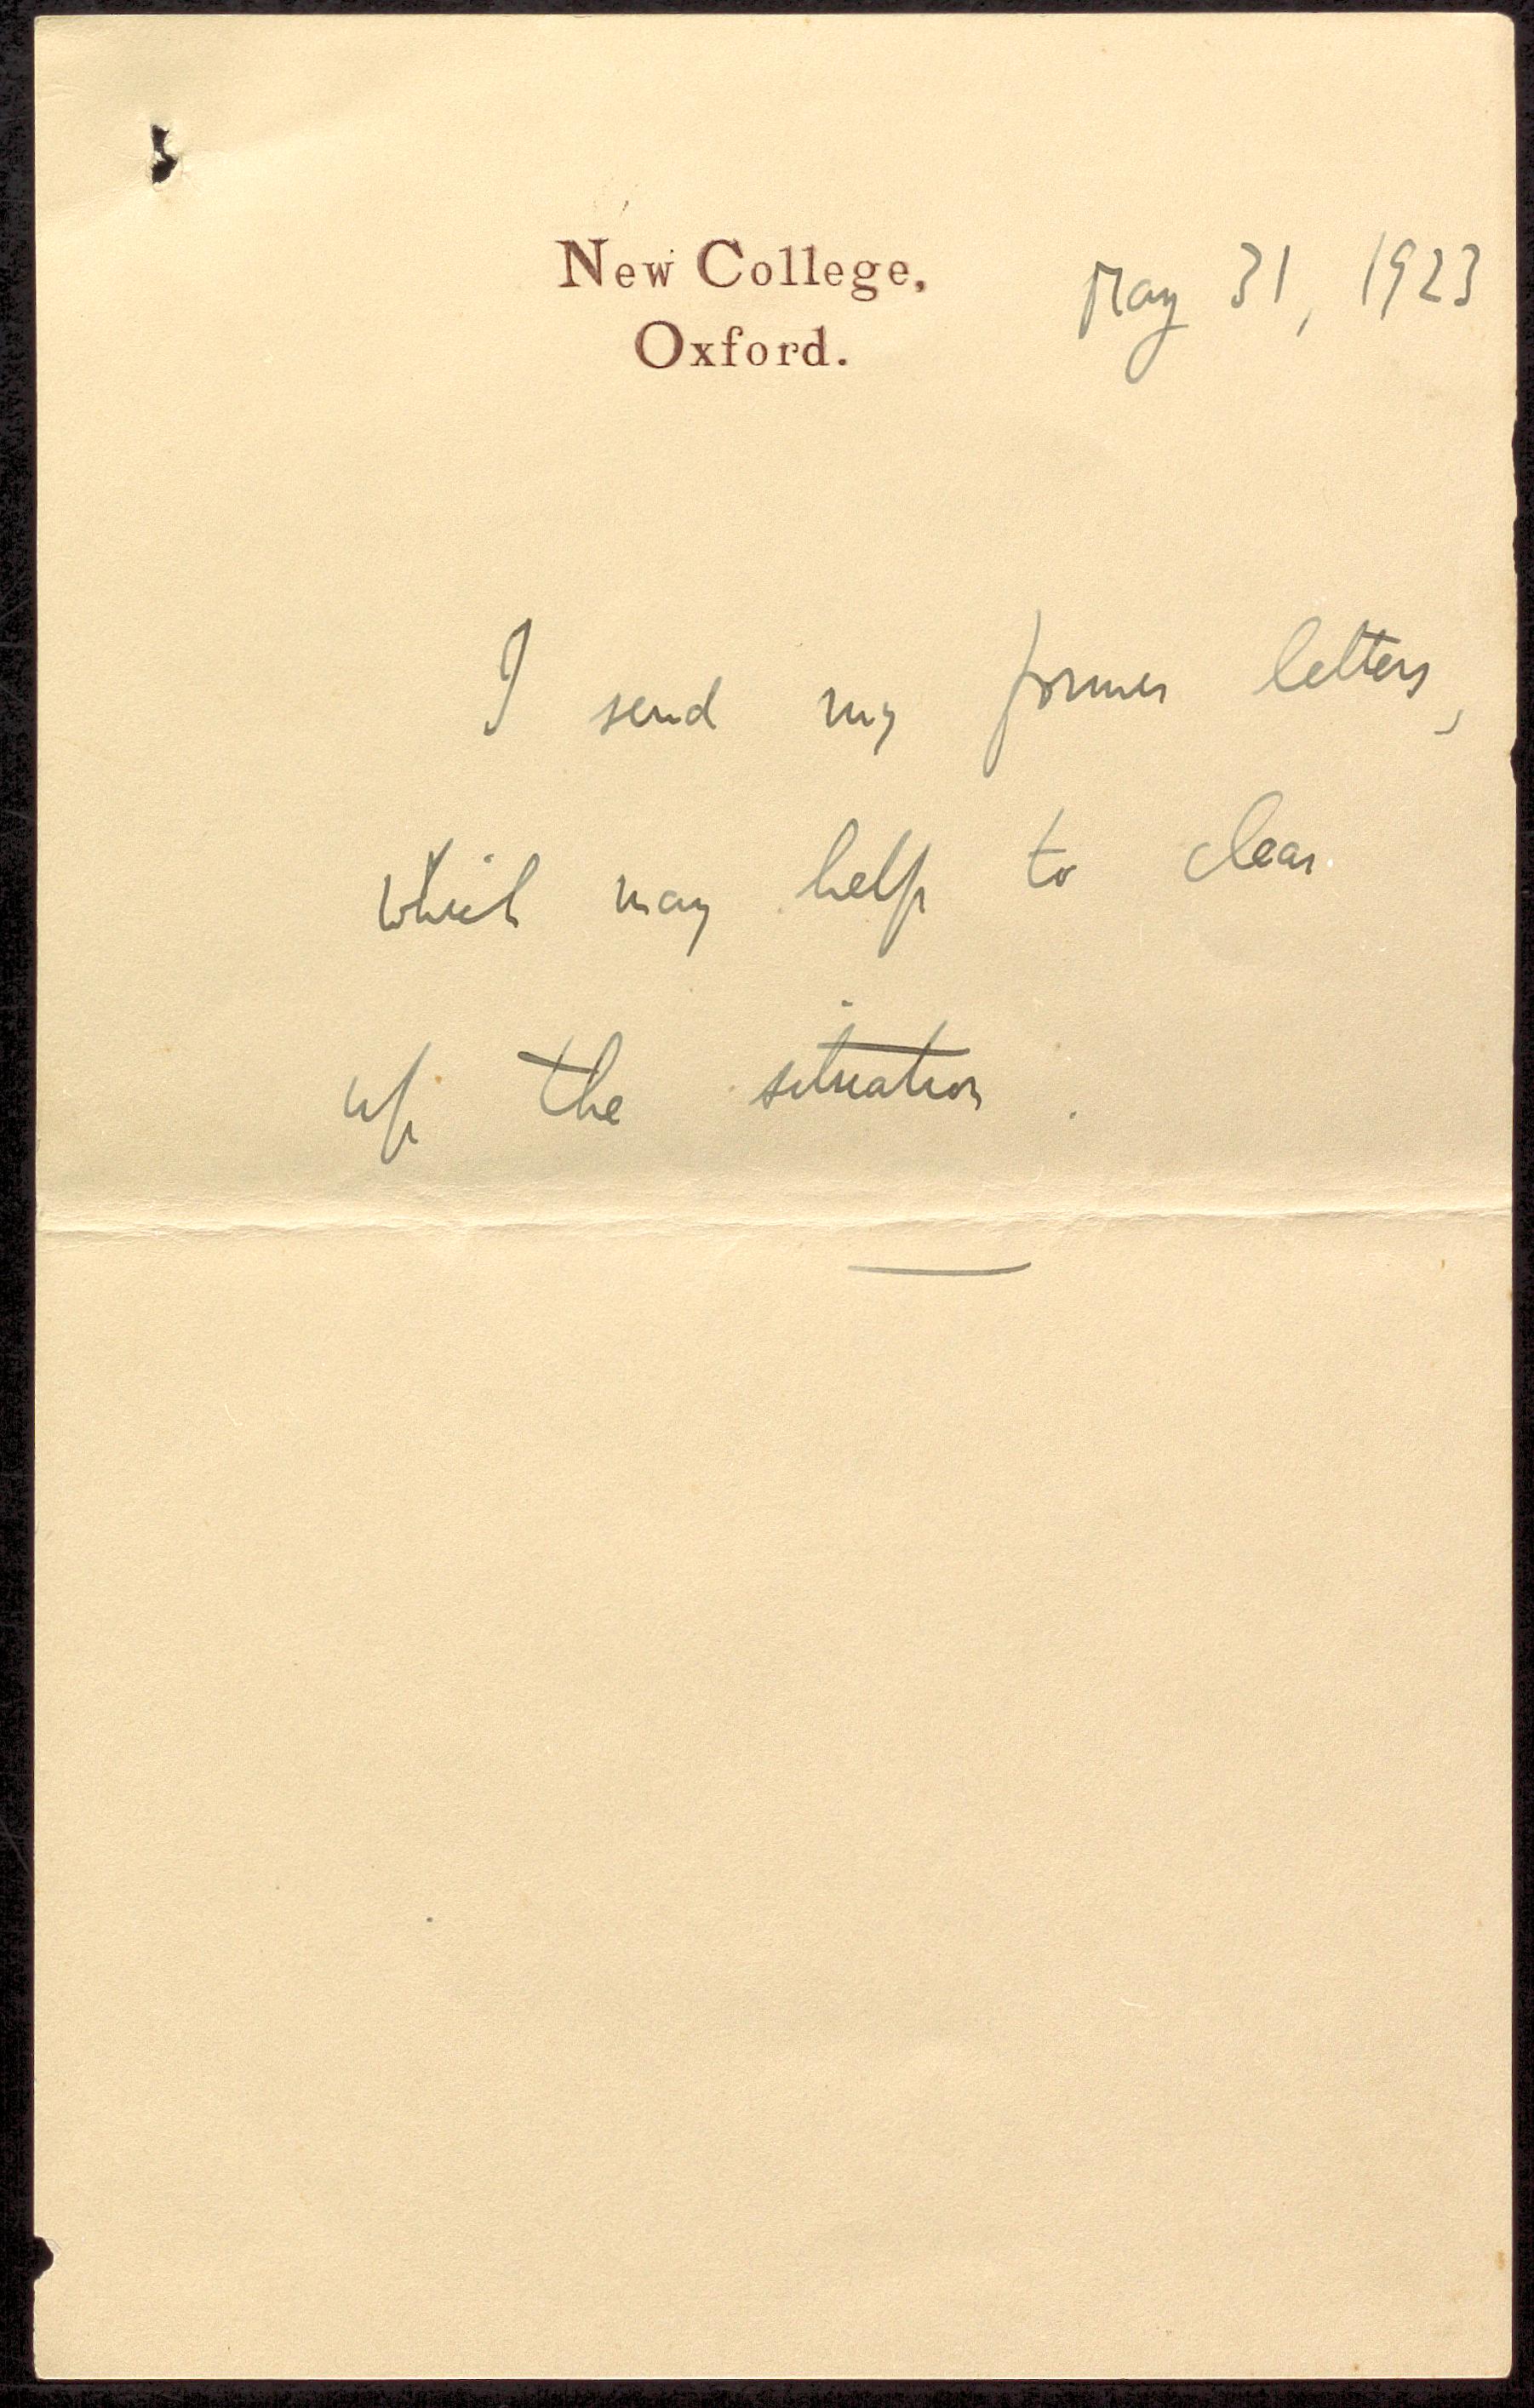 New College,
Oxford.
May 31, 1923
I send my former letters,
which may help to clear
up the situation.